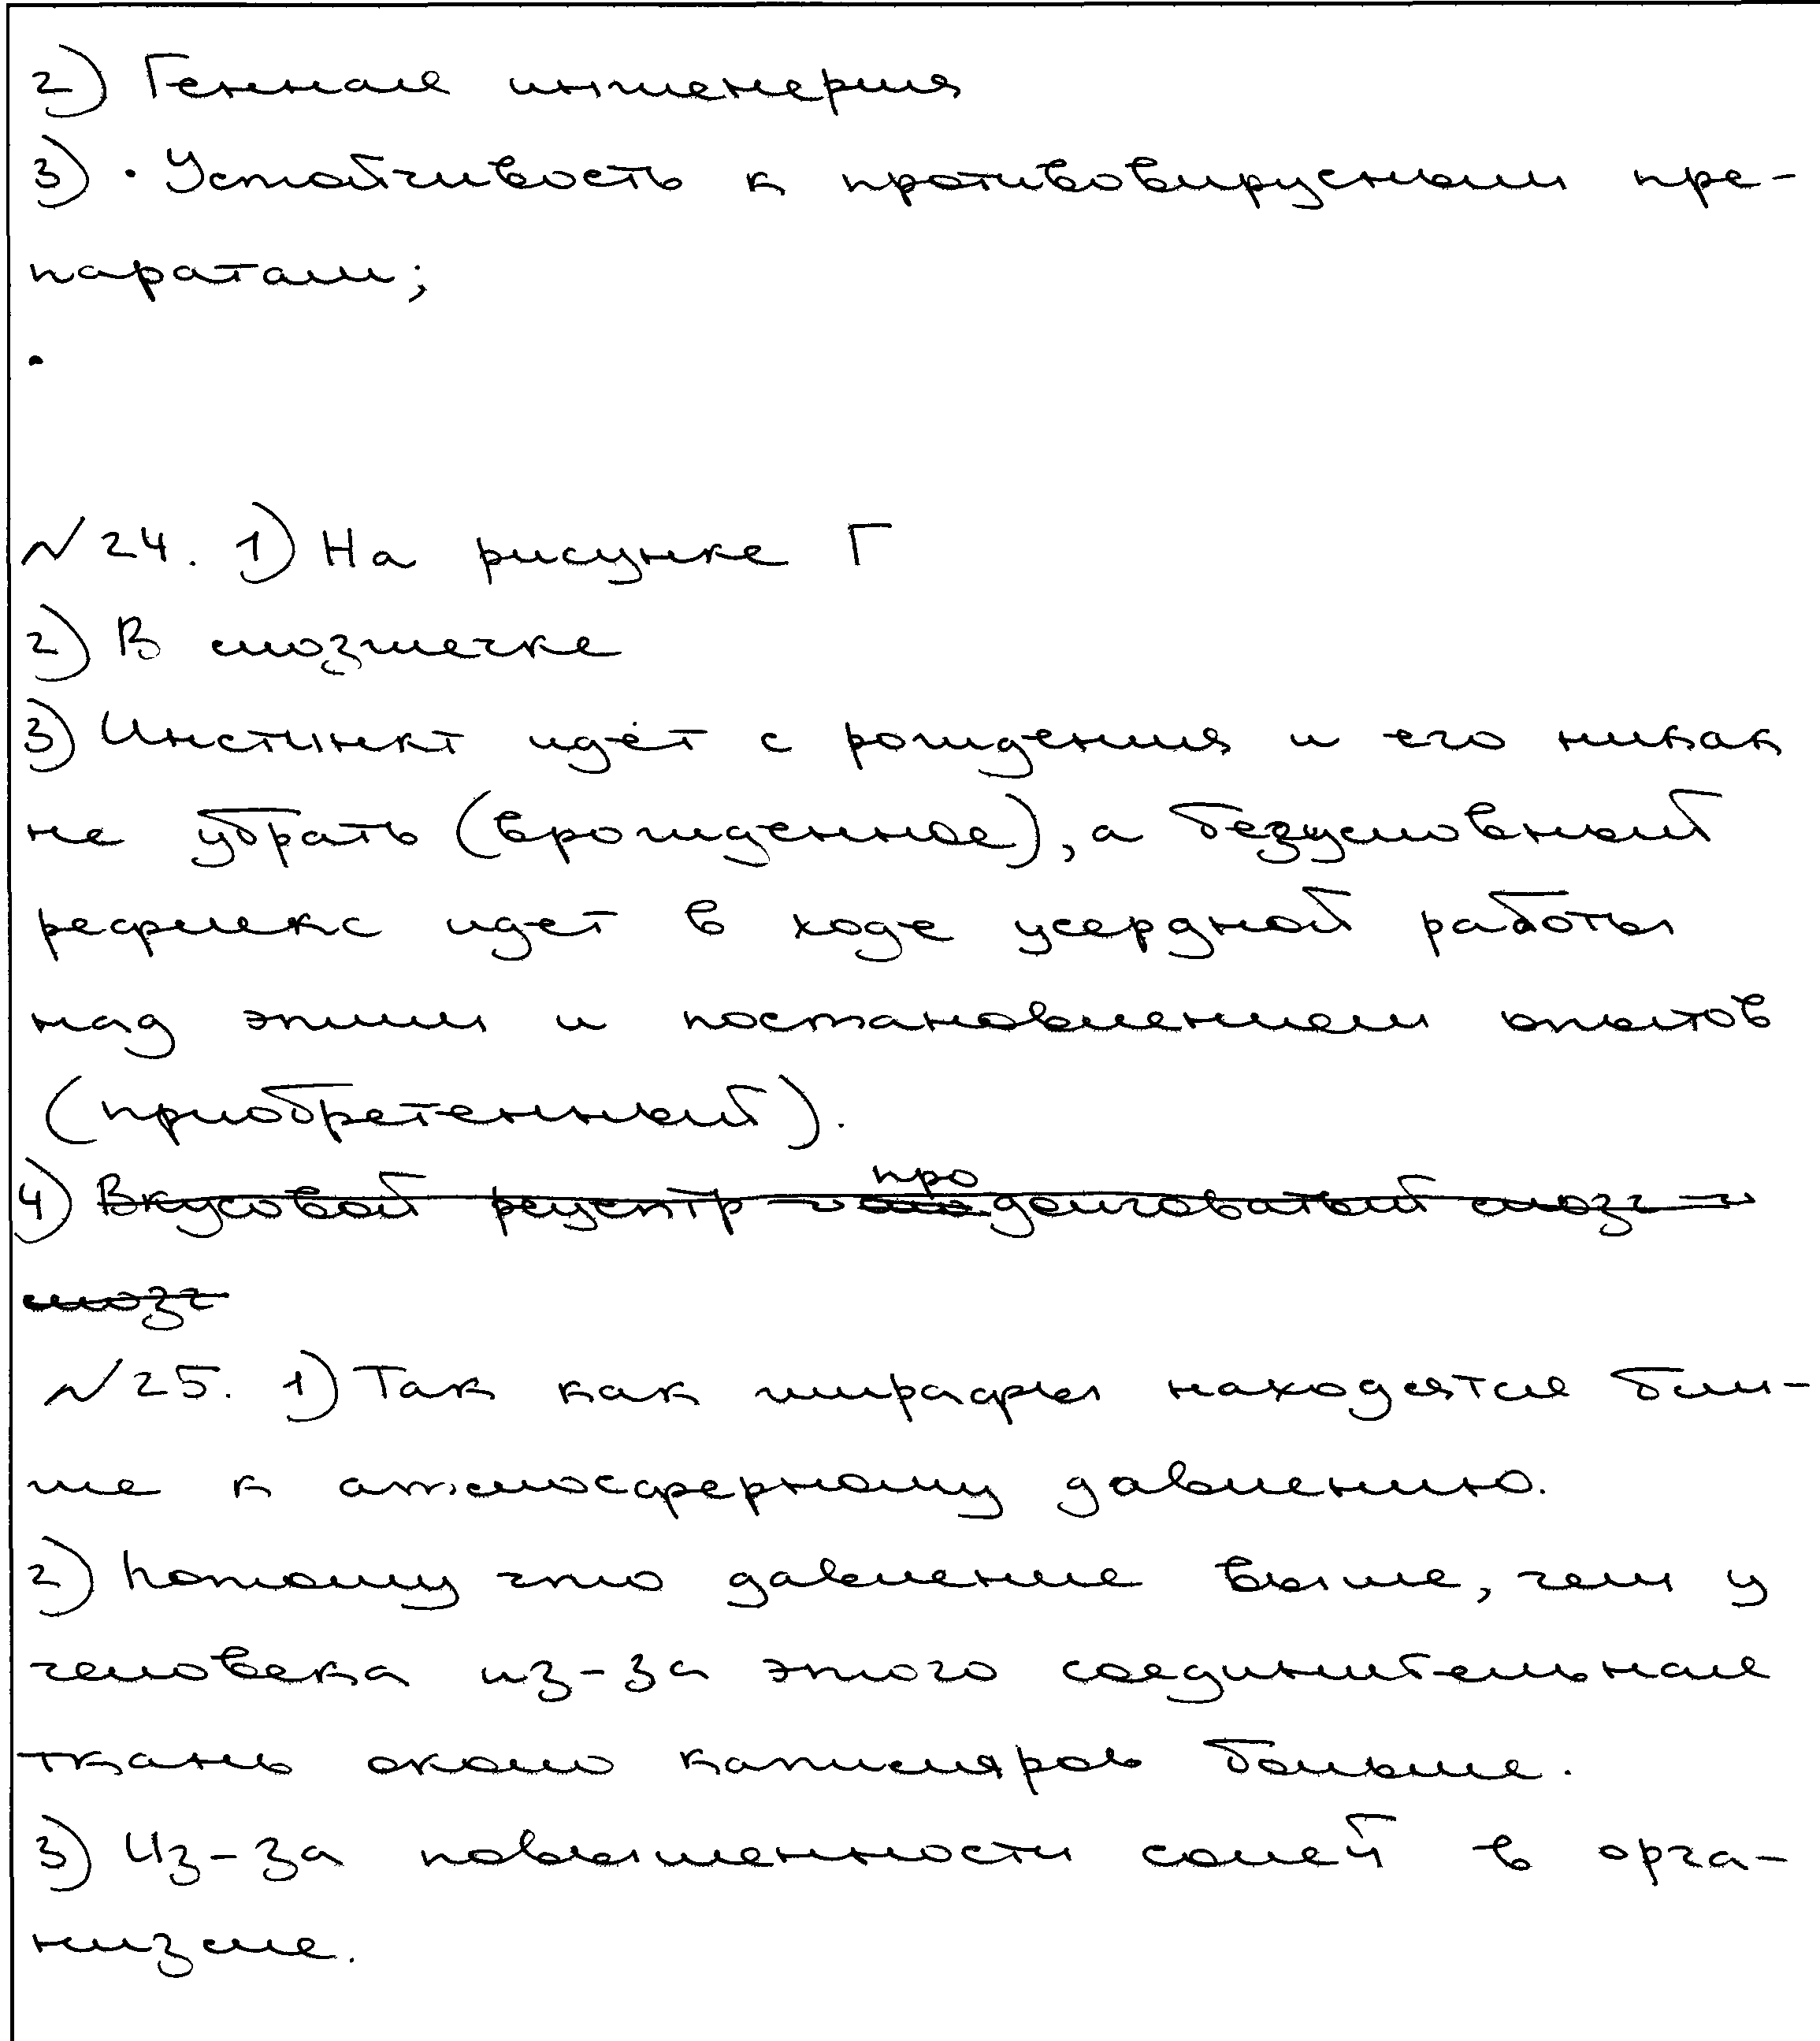 2) Генная инженерия
3) · Устойчивость к противовирусным пре-
паратам;
·
№24. 1) На рисунке Г
2) В мозжечке
3) Инстинкт идёт с рождения и его никак
не убрать (врожденное), а безусловный
рефлекс идет в ходе усердной работы
над этим и постановлением опытов
(приобретенный).
4) Вкусовой рецептр – продолговатый мозг –
мозг
№25. 1) Так как жирафы находятся бли-
же к атмосферному давлению.
2) Потому что давление выше, чем у
человека из-за этого соединительная
ткань около капиляров больше.
3) Из-за повышенности солей в орга-
низме.